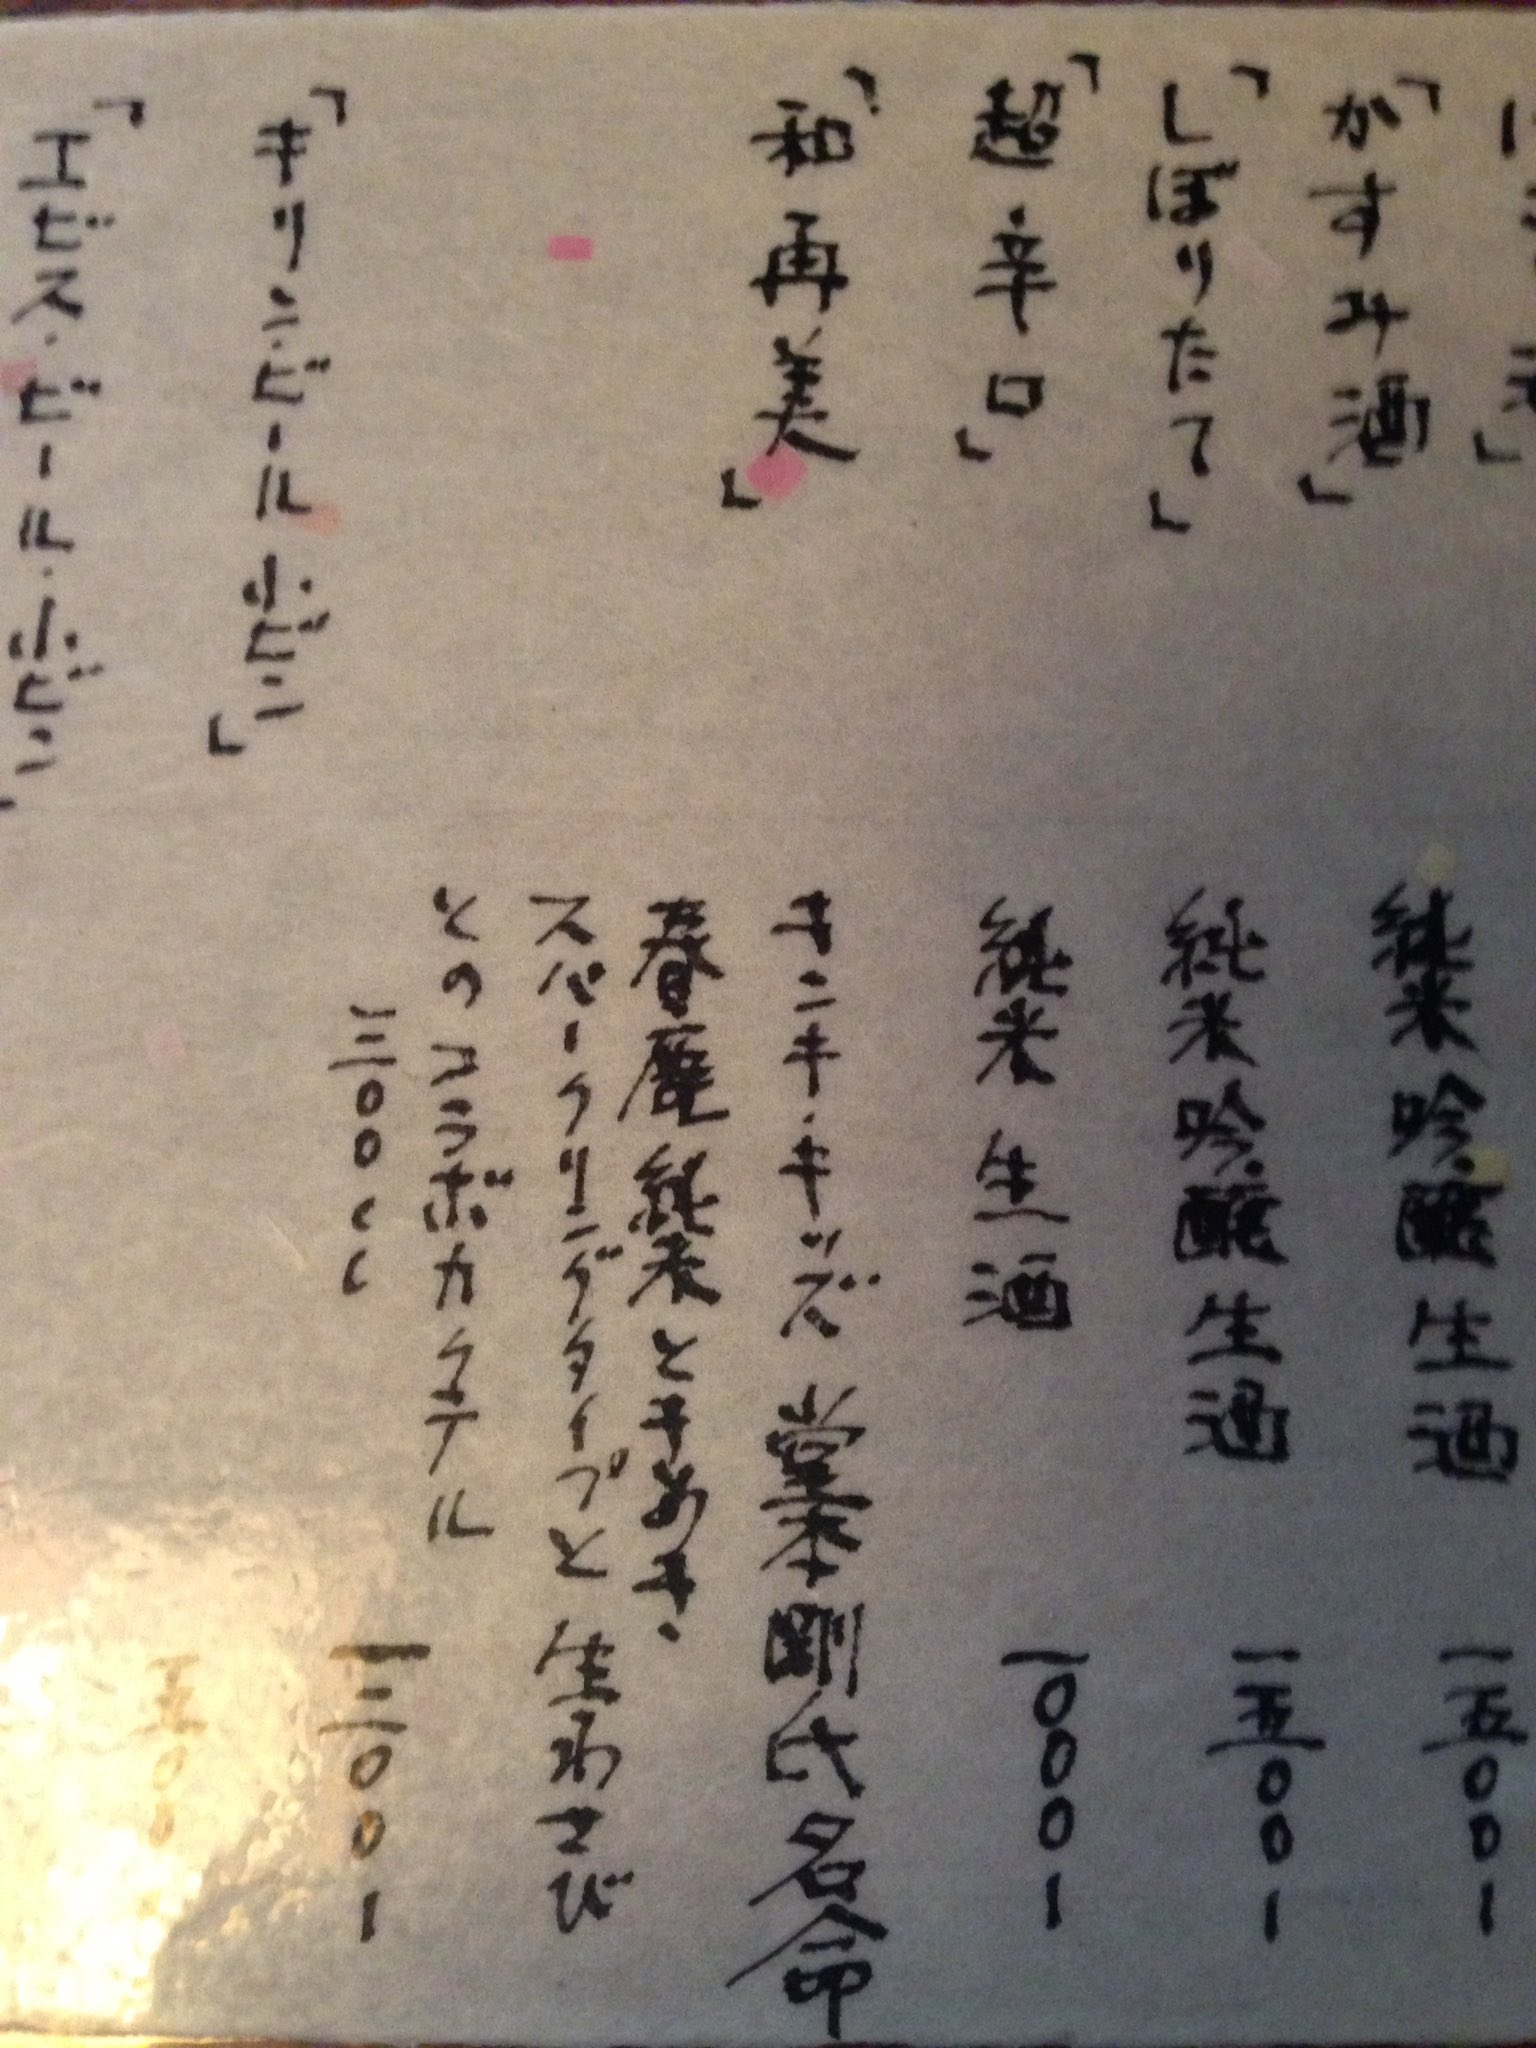 「かすみ酒」 純米吟醸生酒 一五〇〇ー
「しぼりたて」 純米吟醸生酒 一五〇〇ー
「超辛口」 純米生酒 一〇〇〇ー
「和再美」 キンキ・キッズ 堂本剛氏名命
春鹿 純米ときめき・
スパークリングタイプと生わさび
とのコラボカクテル
三〇〇cc 一二〇〇ー
「キリン・ビール小ビン」 五〇〇
「エビス・ビール・小ビン